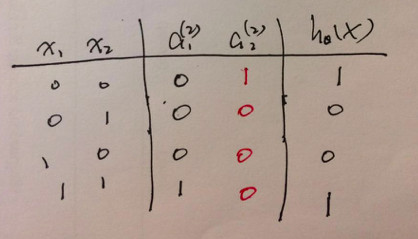 x₁ x₂ a₁⁽²⁾ a₂⁽²⁾ hθ(x)
0 0 0 1 1
0 1 0 0 0
1 0 0 0 0
1 1 1 0 1